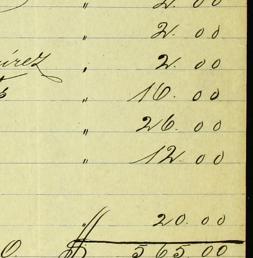 " 2. 00
" 2. 00
" 2. 00
" 16. 00
" 26. 00
" 12. 00
" 20. 00
$ 565.00